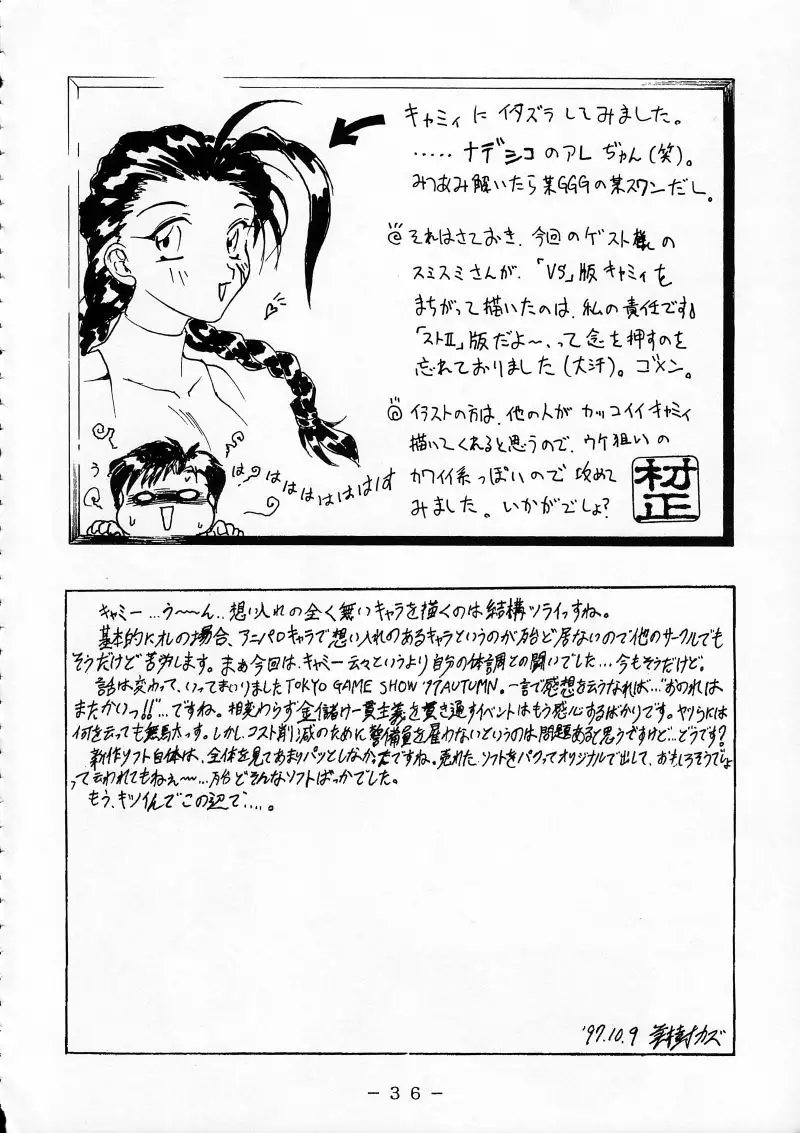 キャミィに イタズラ してみました。
‥‥‥ナデシコのアレ ぢゃん(笑)。
みつあみ解いたら某GGGの某スワンだし。
◎それはさておき、今回のゲスト様の
スミスミさんが、「VS」版キャミィを
まちがって描いたのは、私の責任です。
「ストⅡ」版だよ〜、って念を押すのを
忘れておりました(大汗)。ゴメン。
◎イラストの方は、他の人が カッコイイ キャミィ
描いてくれると思うので、ウケ狙いの
カワイイ系っぽいので 攻めて
みました。いかがでしょ?
村正
う はっははははははっす
キャミー…う〜〜ん‥想い入れの全く無いキャラを描くのは結構ツライっすね。
基本的にオレの場合、アニパロのキャラで想い入れのあるキャラというのが殆ど居ないので他のサークルでも
そうだけど苦労します。まぁ今回は、キャミー云々というより自分の体調との闘いでした…今もそうだけど。
話は変わって、いってまいりましたTOKYO GAME SHOW '97 AUTUMN。一言で感想を云うなれば…"おのれは
またかいっ!!"…ですね。相変わらず金儲け一貫主義を貫き通すイベントはもう感心するばかりです。ヤツらには
何を云っても無駄っす。しかしコスト削減のために警備員を雇わないというのは問題あると思うですけど…どうです?
新作ソフト自体は、全体を見てあまりパッとしなかったですね。売れたソフトをパクってオリジナルで出して、おもしろそうでしょ
って云われてもねぇ〜…殆どそんなソフトばっかでした。
もう、キツイんでこの辺で…。
'97.10.9 カズ
-36-